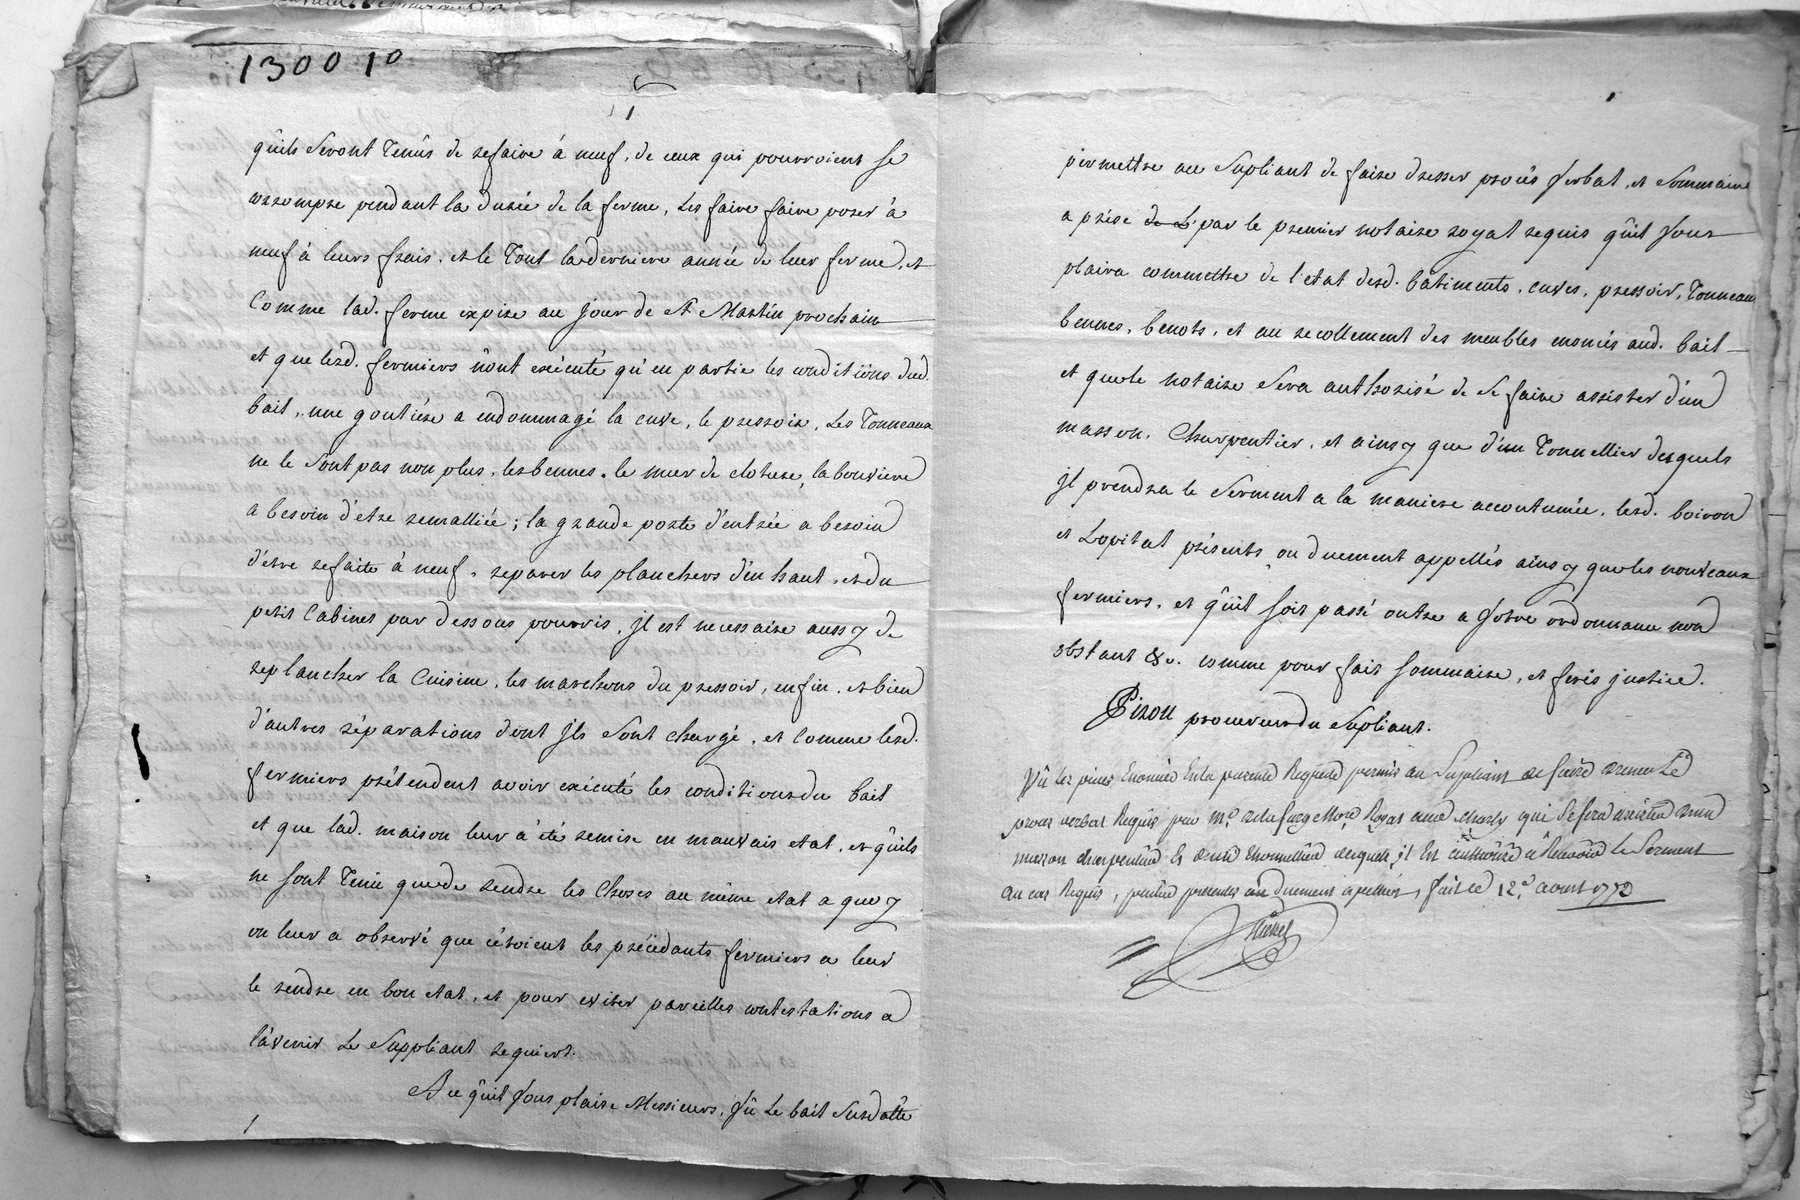 130010
qûils seront tenûs de refaire à neuf, de ceux qui pourroient se
corrompre pendant la durée de la ferme, les faire faire poser à
neuf à leurs frais, et le tout la derniere année de leur ferme, et
Comme lad. ferme expire au jour de St Martin prochain
et que lesd. fermiers n'ont exécuté qu'en partie les conditions dud.
bail, une goutiére a endommagé la cuve, le pressoir, Les Tonneaux
ne le sont pas non plus, les bennes, le mur de cloture, la bouviere
a besoin d'etre remalliée; la grande porte d'entrée a besoin
d'être refaite à neuf, reparer les planchers d'en haut, et du
petit Cabinet par dessous pourris, jl est necessaire aussy de
replancher la Cuisine, les marchons du pressoir, enfin, et bien
d'autres réparations dont jls sont chargé, et Comme lesd.
fermiers prétendent avoir exécuté les conditions du bail
et que lad. maison leur a été remise en mauvais etat, et qûils
ne sont tenu que de rendre les Choses au même etat a quoy
on leur a observé que c'étoient les précédants fermiers a leur
le rendre en bon etat, et pour eviter pareilles contestations a
l'avenir Le Suppliant requiert.
A ce qûil vous plaise Messieurs, Vû Le bail susdatte
permettre au Supliant de faire dresser procès verbal, et sommaire
a prise de L par le premier notaire royal requis qûil vous
plaira commettre de l'etat desd. bâtiments, cuves, pressoir, Tonneaux
bennes, benots, et au recollement des meubles enoncés aud. bail
et que le notaire sera authorisé de se faire assister d'un
masson, Charpentier, et ainsy que d'un Tonnellier desquels
jl prendra le serment a la maniere accoutumée, lesd. boiron
et Lopital présents, ou duement appellés ainsy que les nouveaux
fermiers, et qûil soit passé outre a votre ordonnance non
obstant &c. comme pour fait sommaire, et ferés justice.
Pizou procureur du Supliant.
Vû les pieces Enoncées En la presente Requete permis au Suppliant de faire dresser Le
procès verbal Requis par Me. delafarge Nore Royal a qui se fera assister d'un
masson charpentier Et d'un thonnellier desquels il Est authorisé à Recevoir Le Serment
au cas Requis, parties presentes ou duement apellées, fait le 12e aoust 1772